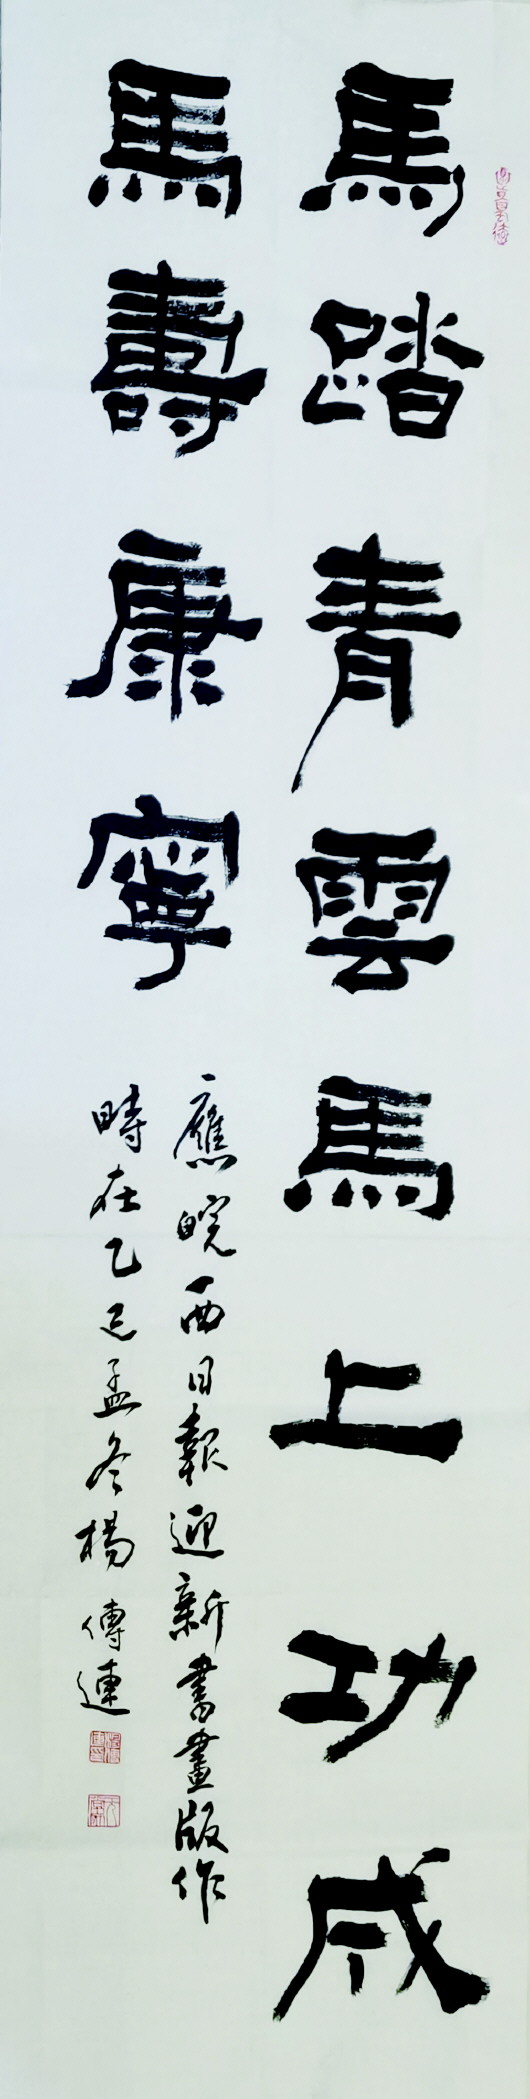 馬踏青雲馬上功成
馬壽康寧
應皖西日報迎新書畫版作
時在乙巳孟冬楊傳連